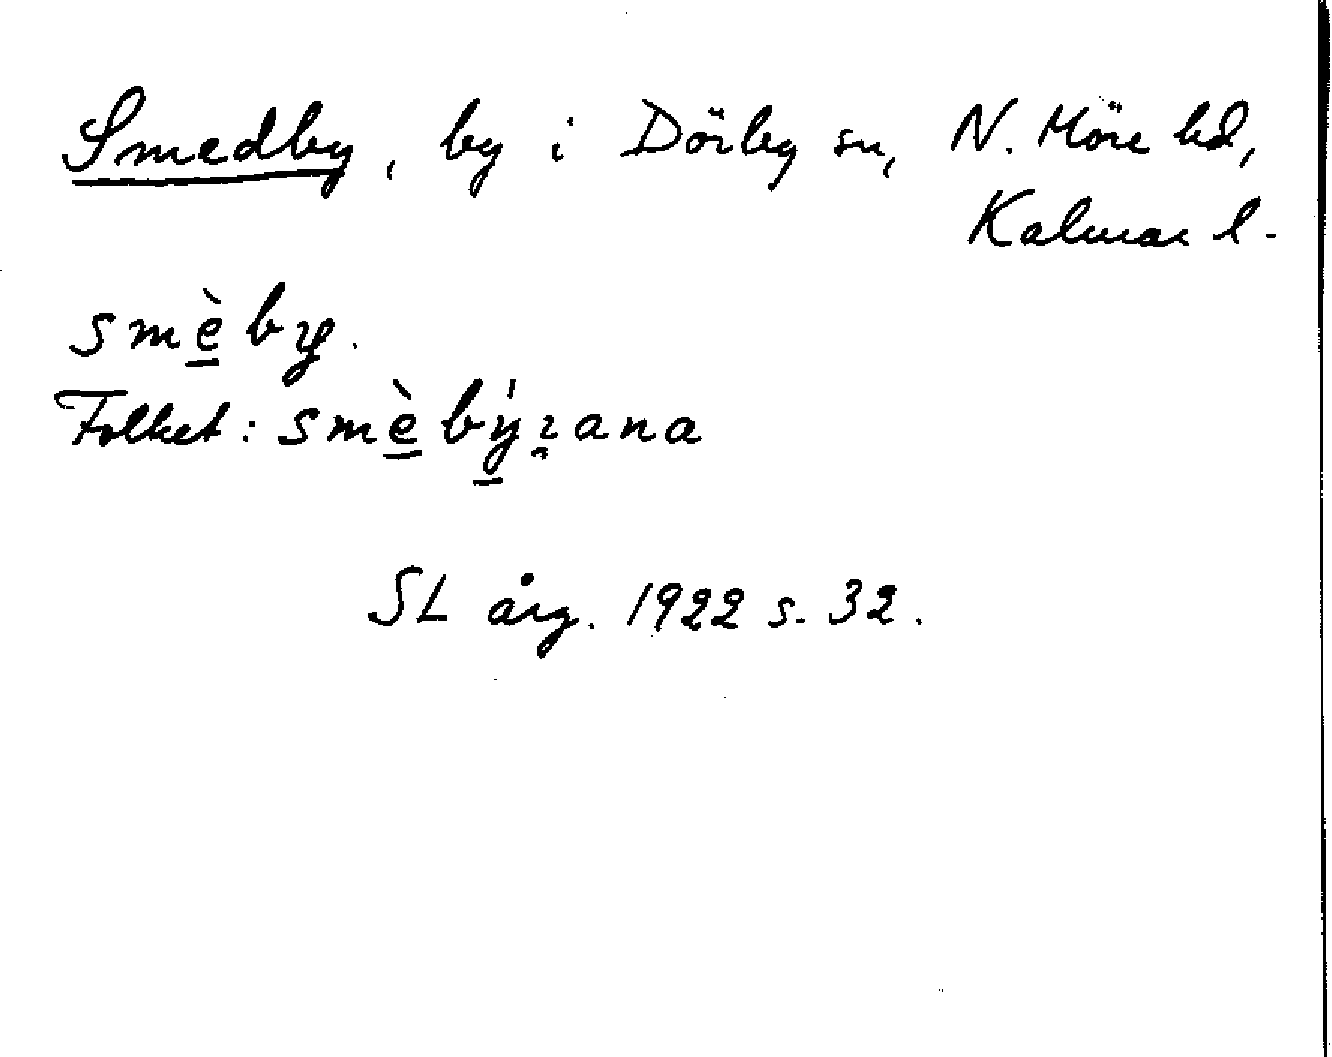 Smedby, by i Dörby sn, N. Möre hd,
Kalmar l.
smè̠by.
Folket: smè̠bý̠ɪ̯ana
SL årg. 1922 s. 32.